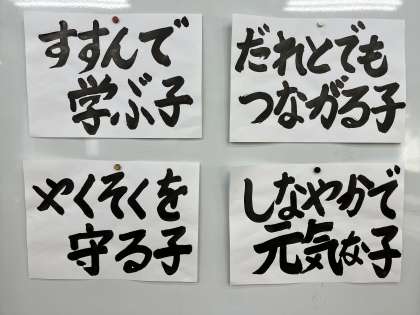 すすんで
学ぶ子
だれとでも
つながる子
やくそくを
守る子
しなやかで
元気な子